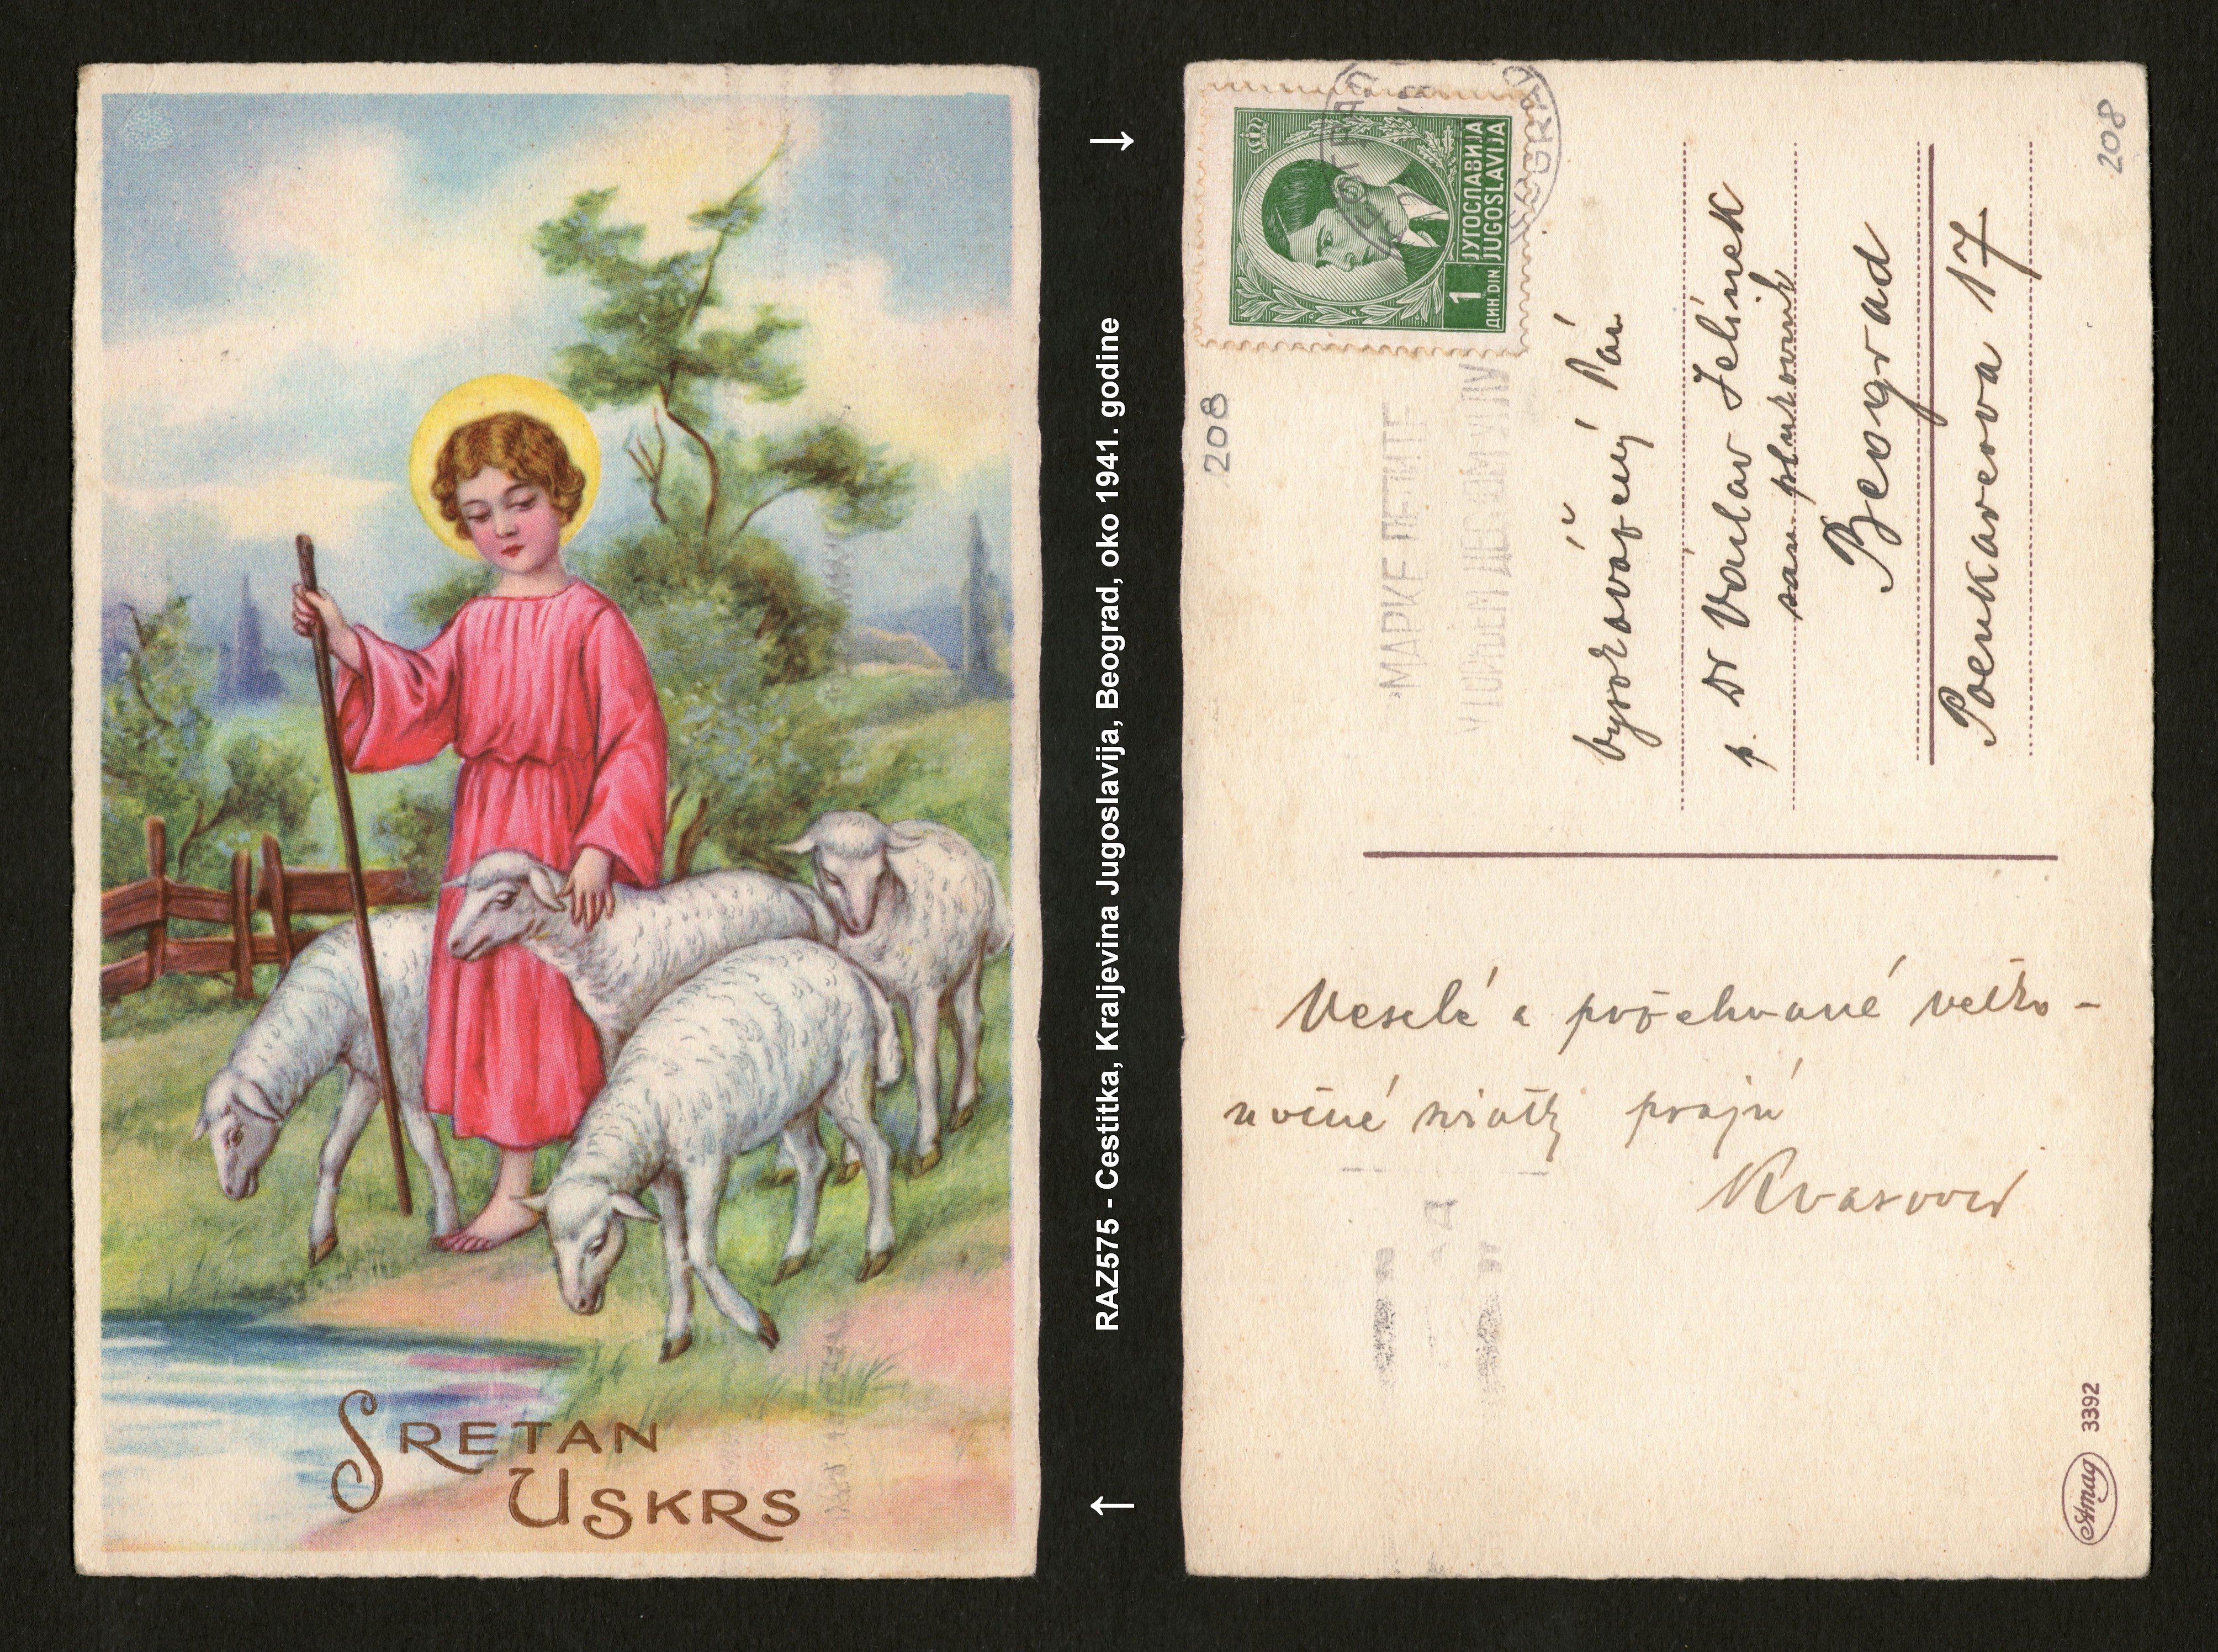 SRETAN
USKRS
RAZ575 - Cestitka, Kraljevina Jugoslavija, Beograd, oko 1941. godine
208
208
1
ДИН DIN
ЈУГОСЛАВИЈА
JUGOSLAVIJA
BEOGRAD
МАРКЕ ЛЕПИТЕ
Pán
p. Dr Václav Jelínek
Beograd
Poenkareova 17
Veselé a požehnané velko-
nočné sviatky prajú
Amag 3392